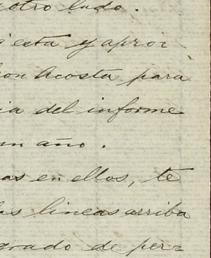 otro lado.
esta y apro
on Acosta para
ia del informe
un año.
as en ellos, te
as lineas arriba
grado de per=